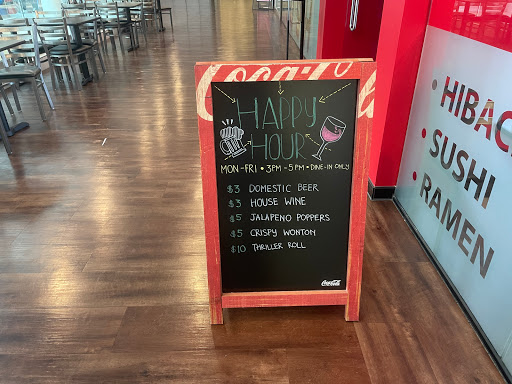 Coca-Cola
HAPPY
HOUR
MON-FRI • 3PM-5PM • DINE-IN ONLY
$3 DOMESTIC BEER
$3 HOUSE WINE
$5 JALAPENO POPPERS
$5 CRISPY WONTON
$10 THRILLER ROLL
Coca-Cola
• HIBAC
• SUSHI
• RAMEN